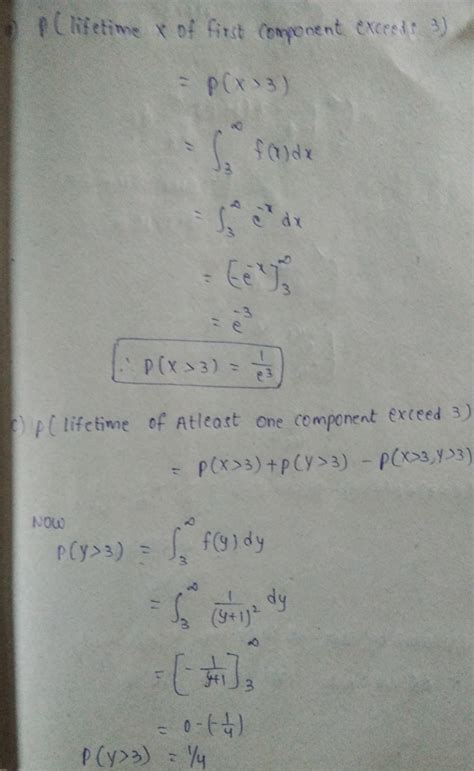 a) P( lifetime X of first component exceeds 3)
= P(X>3)
= ∫₃^∞ f(x)dx
= ∫₃^∞ e^-x dx
= [-e^-x]₃^∞
= e^-3
∴ P(X>3) = 1/e³
c) P( lifetime of Atleast one component exceed 3)
= P(X>3)+P(Y>3) - P(X>3,Y>3)
NOW
P(Y>3) = ∫₃^∞ f(y)dy
= ∫₃^∞ 1/(y+1)² dy
= [-1/y+1]₃^∞
= 0-(-1/4)
P(Y>3) = 1/4